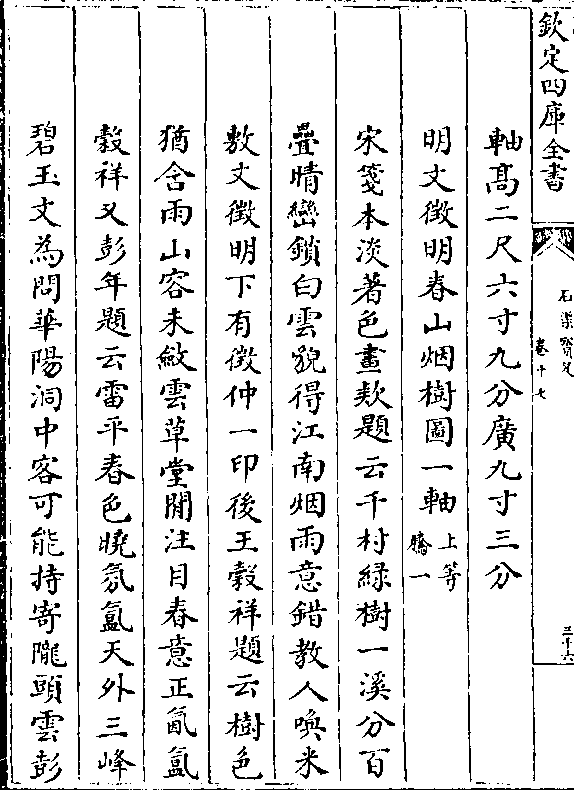 欽定四庫全書
石渠寳笈
卷十七
三十六
軸髙二尺六寸九分廣九寸三分
明文徴明春山烟樹圖一軸 上等
騰一
宋箋本淡著色畫欵題云千村緑樹一溪分百
疊晴巒鎖白雲貌得江南烟雨意錯教人喚米
敷文徴明下有徴仲一印後王榖祥題云樹色
猶含雨山容未斂雲草堂閒注目春意正氤氲
榖祥又彭年題云雷平春色曉氛氲天外三峰
碧玉文為問華陽洞中客可能持寄隴頭雲彭